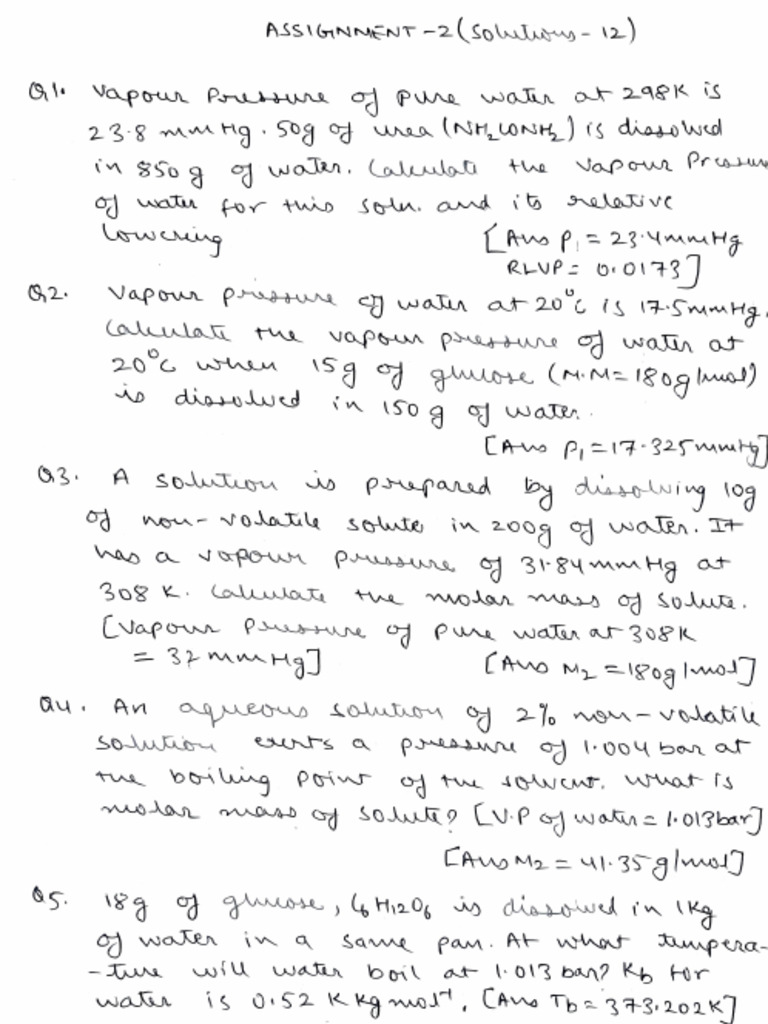 ASSIGNMENT-2 (Solutions-12)
Q1. Vapour Pressure of pure water at 298K is
23.8 mm Hg. 50g of urea (NH₂CONH₂) is dissolved
in 850 g of water. Calculate the vapour Pressure
of water for this soln. and its relative
lowering [Ans P₁ = 23.4mmHg
RLVP = 0.0173]
Q2. Vapour pressure of water at 20°C is 17.5mmHg.
Calculate the vapour pressure of water at
20°C when 15g of glucose (M.M=180g/mol)
is dissolved in 150 g of water.
[Ans P₁=17.325mmHg]
Q3. A solution is prepared by dissolving 10g
of non-volatile solute in 200g of water. It
has a vapour pressure of 31.84mmHg at
308 K. Calculate the molar mass of solute.
[Vapour Pressure of pure water at 308K
= 32 mm Hg] [Ans M₂ =180g/mol]
Q4. An aqueous solution of 2% non-volatile
solution exerts a pressure of 1.004 bar at
the boiling point of the solvent. What is
molar mass of solute? [V.P of water = 1.013bar]
[Ans M₂ = 41.35 g/mol]
Q5. 18g of glucose, C₆H₁₂O₆ is dissolved in 1Kg
of water in a same pan. At what tempera-
-ture will water boil at 1.013 bar? Kb for
water is 0.52 K Kg mol⁻¹. [Ans Tb = 373.202K]